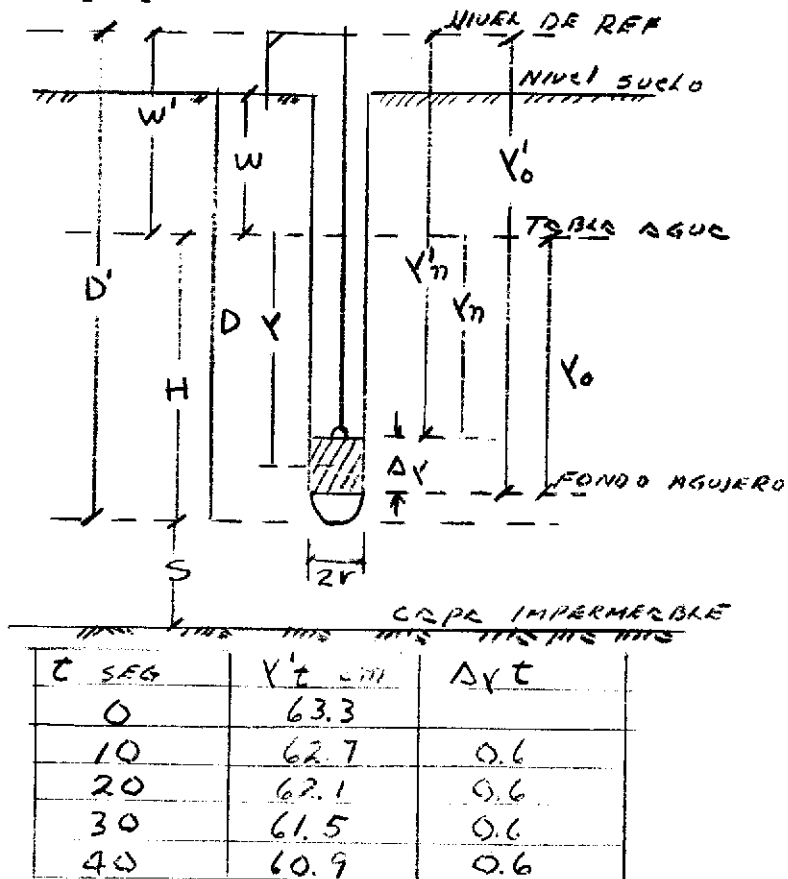 NIVEL DE REF
NIVEL SUELO
W'
W
Y'o
TABLA AGUA
D'
Y'n
Yn
D
Y
H
Yo
ΔY
FONDO AGUJERO
2r
S
CAPA IMPERMEABLE
t SEG Y't cm ΔY t
0 63.3
10 62.7 0.6
20 62.1 0.6
30 61.5 0.6
40 60.9 0.6